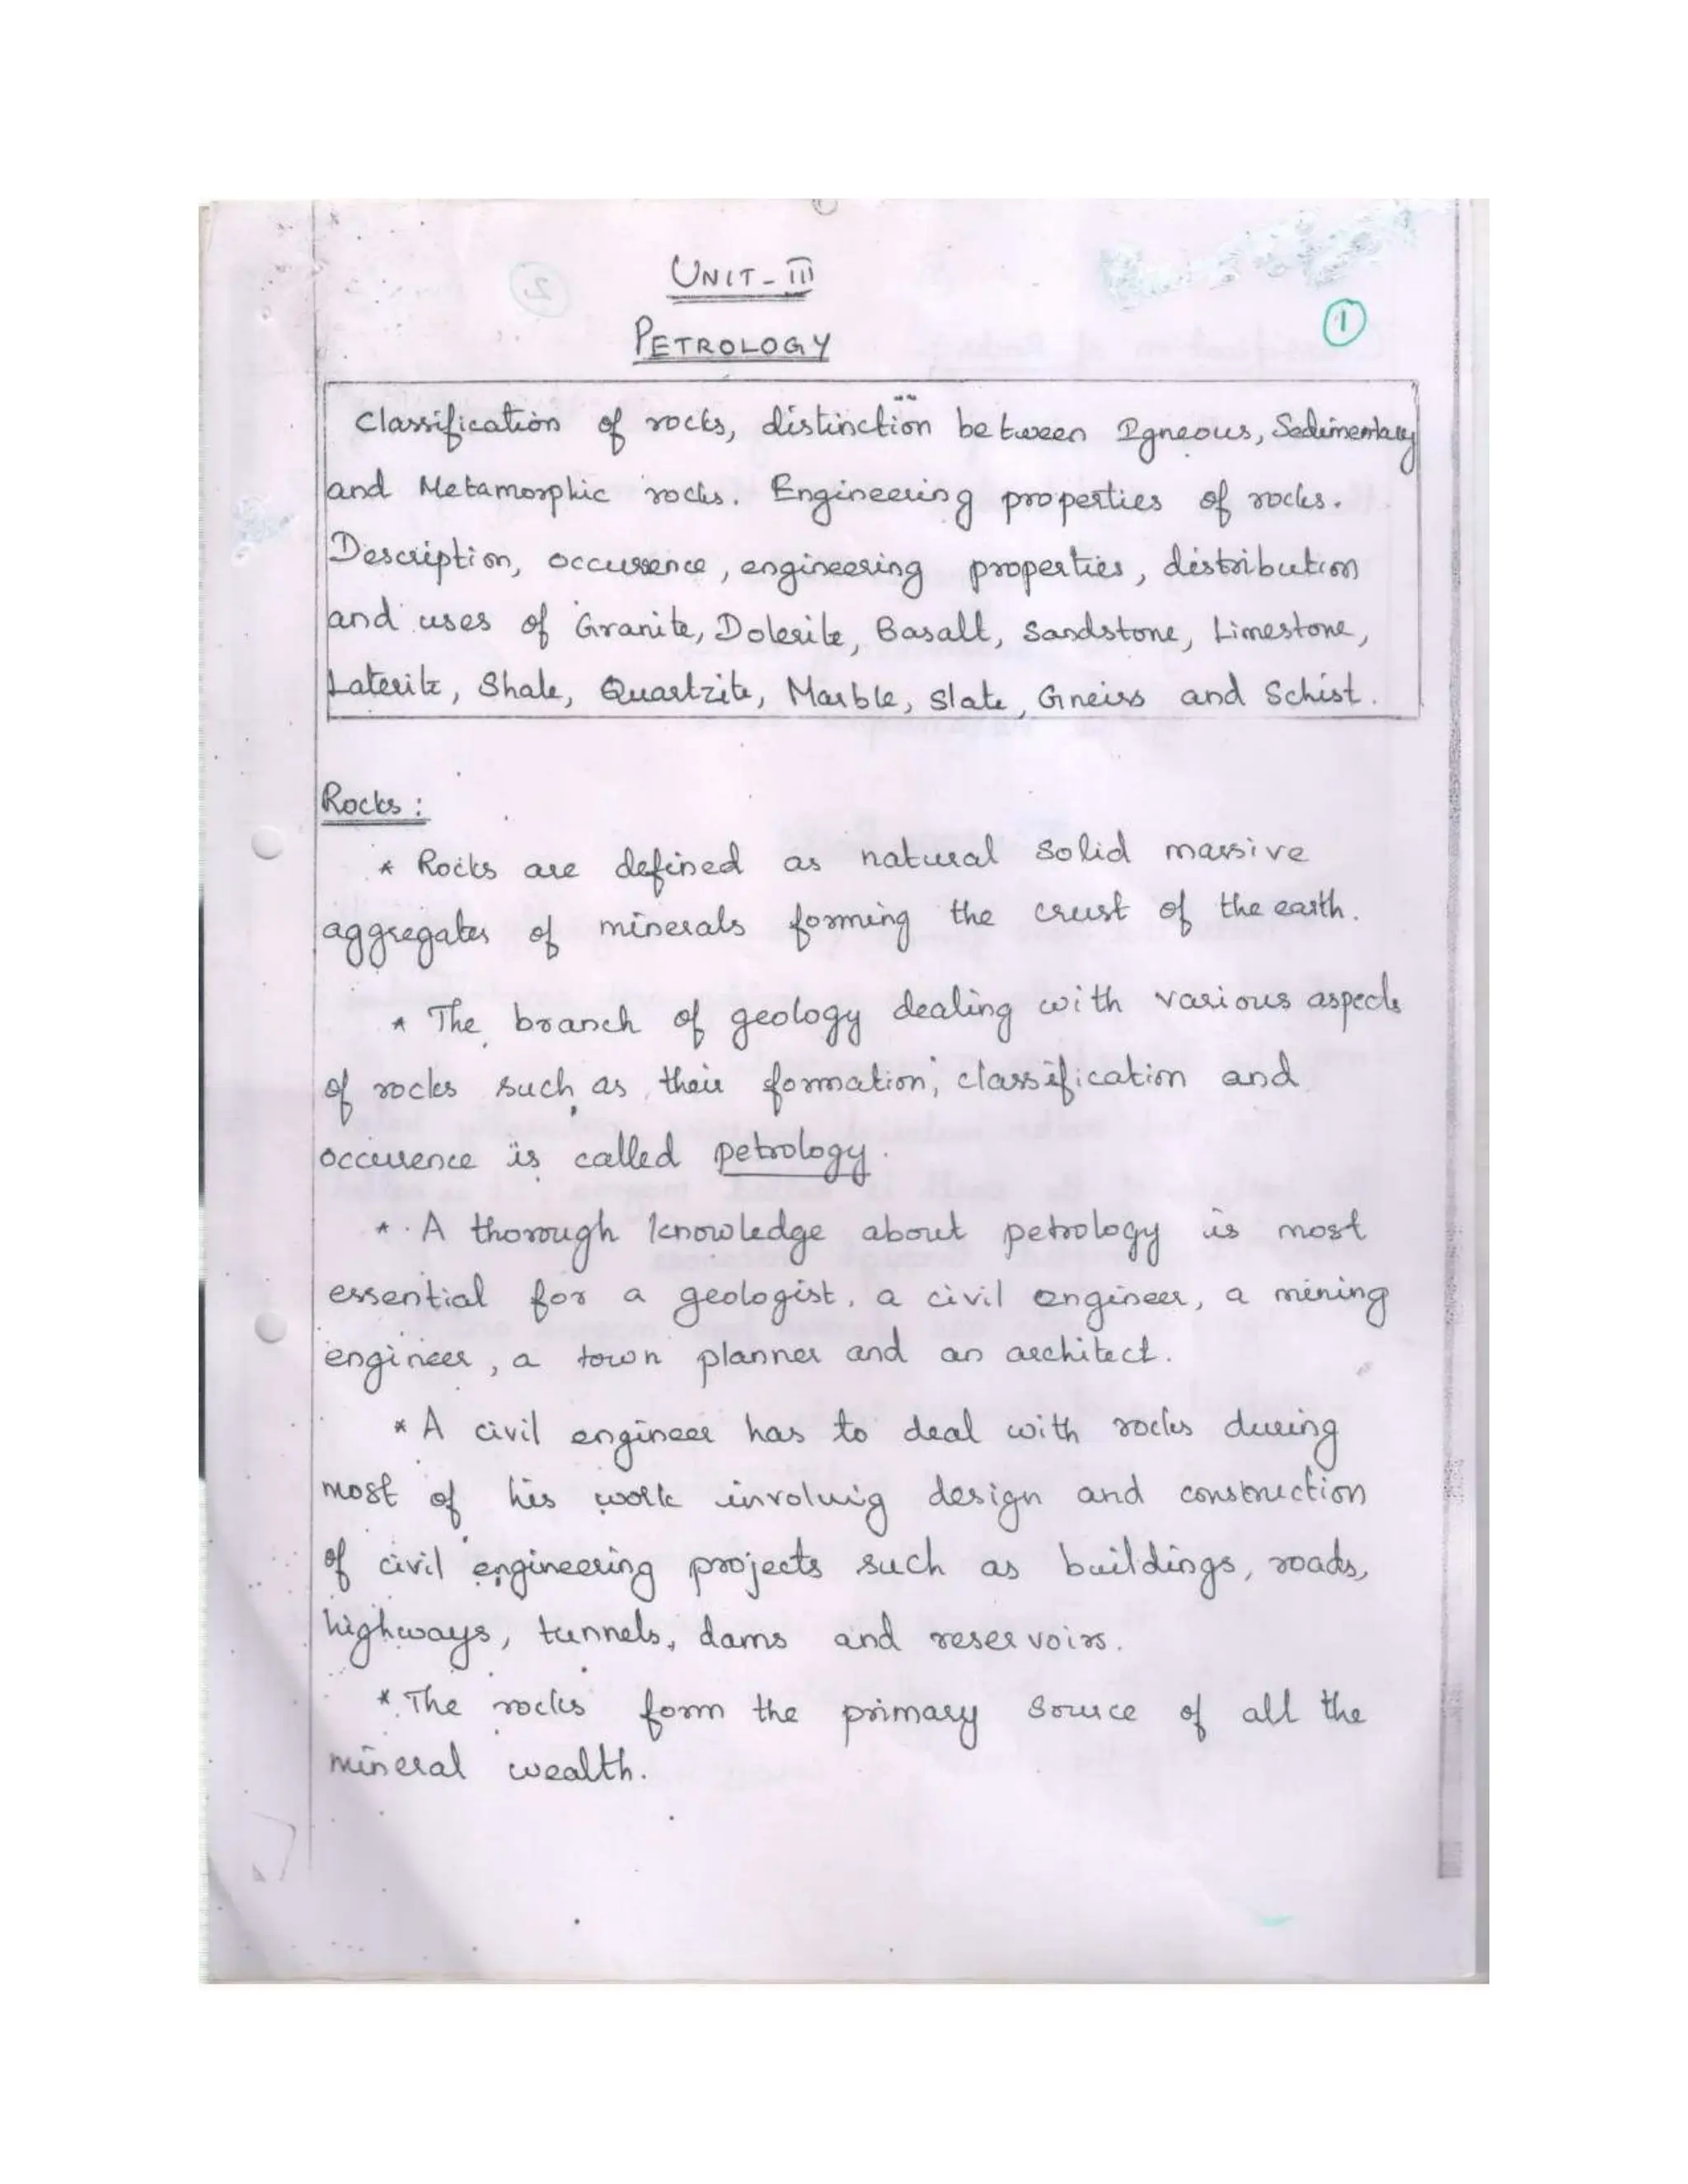 UNIT - III
①
PETROLOGY
Classification of rocks, distinction between Igneous, Sedimentary
and Metamorphic rocks. Engineering properties of rocks.
Description, occurrence, engineering properties, distribution
and uses of Granite, Dolerite, Basalt, Sandstone, Limestone,
Laterite, Shale, Quartzite, Marble, Slate, Gneiss and Schist.
Rocks :
* Rocks are defined as natural solid massive
aggregates of minerals forming the crust of the earth.
* The branch of geology dealing with various aspects
of rocks such as their formation, classification and
occurence is called petrology.
* A thorough knowledge about petrology is most
essential for a geologist, a civil engineer, a mining
engineer, a town planner and an architect.
* A civil engineer has to deal with rocks during
most of his work involving design and construction
of civil engineering projects such as buildings, roads,
highways, tunnels, dams and reservoirs.
* The rocks form the primary source of all the
mineral wealth.